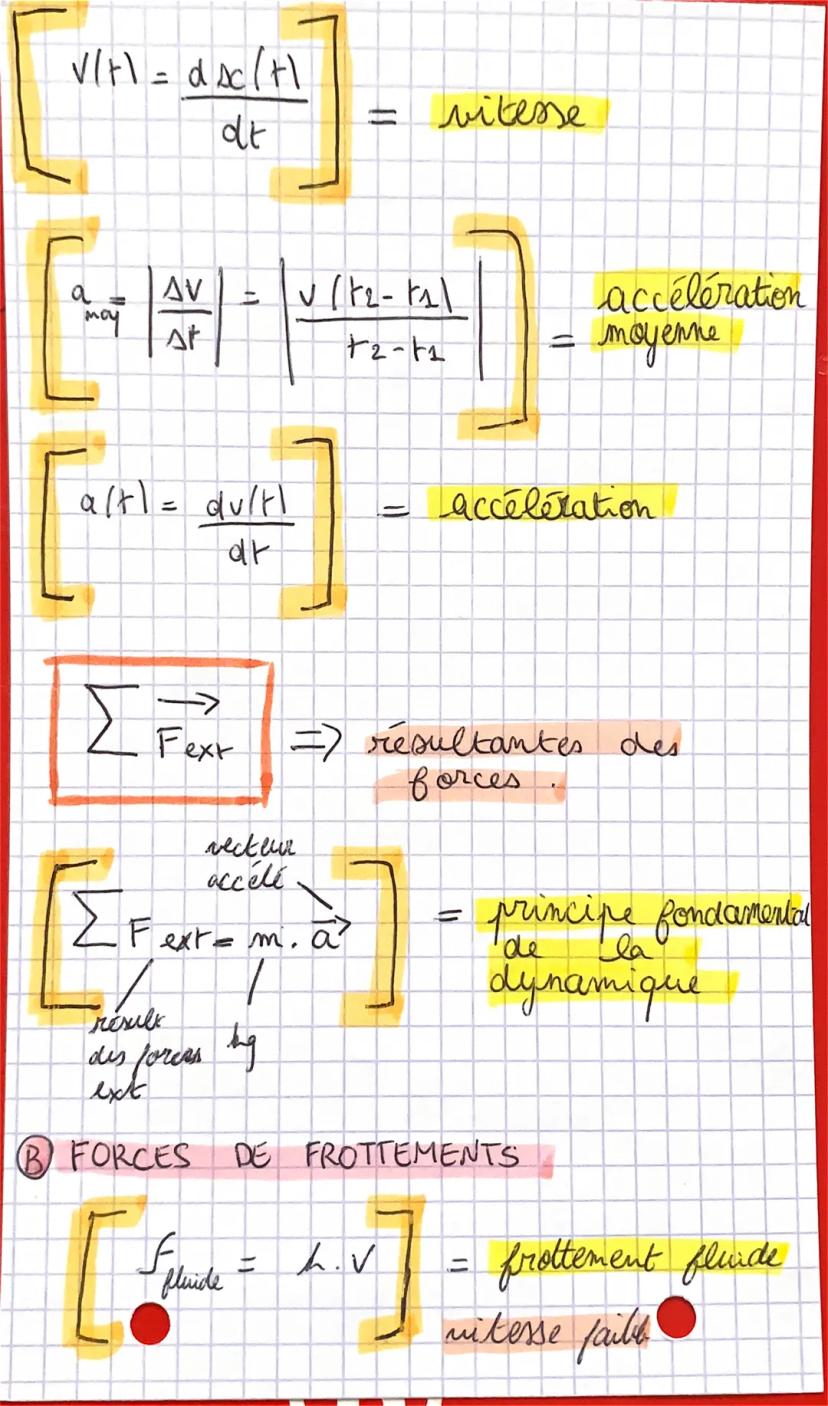 v(t) = dx(t)/dt = vitesse
a moy = |Δv/Δt| = |v(t2-t1)/t2-t1| = accélération
moyenne
a(t) = dv(t)/dt = accélération
∑ F⃗ext => résultantes des
forces.
vecteur
accélé
∑ F ext = m . a⃗ = principe fondamental
de la
dynamique
résult
des forces kg
ext
B FORCES DE FROTTEMENTS
f fluide = h . v = frottement fluide
vitesse faible